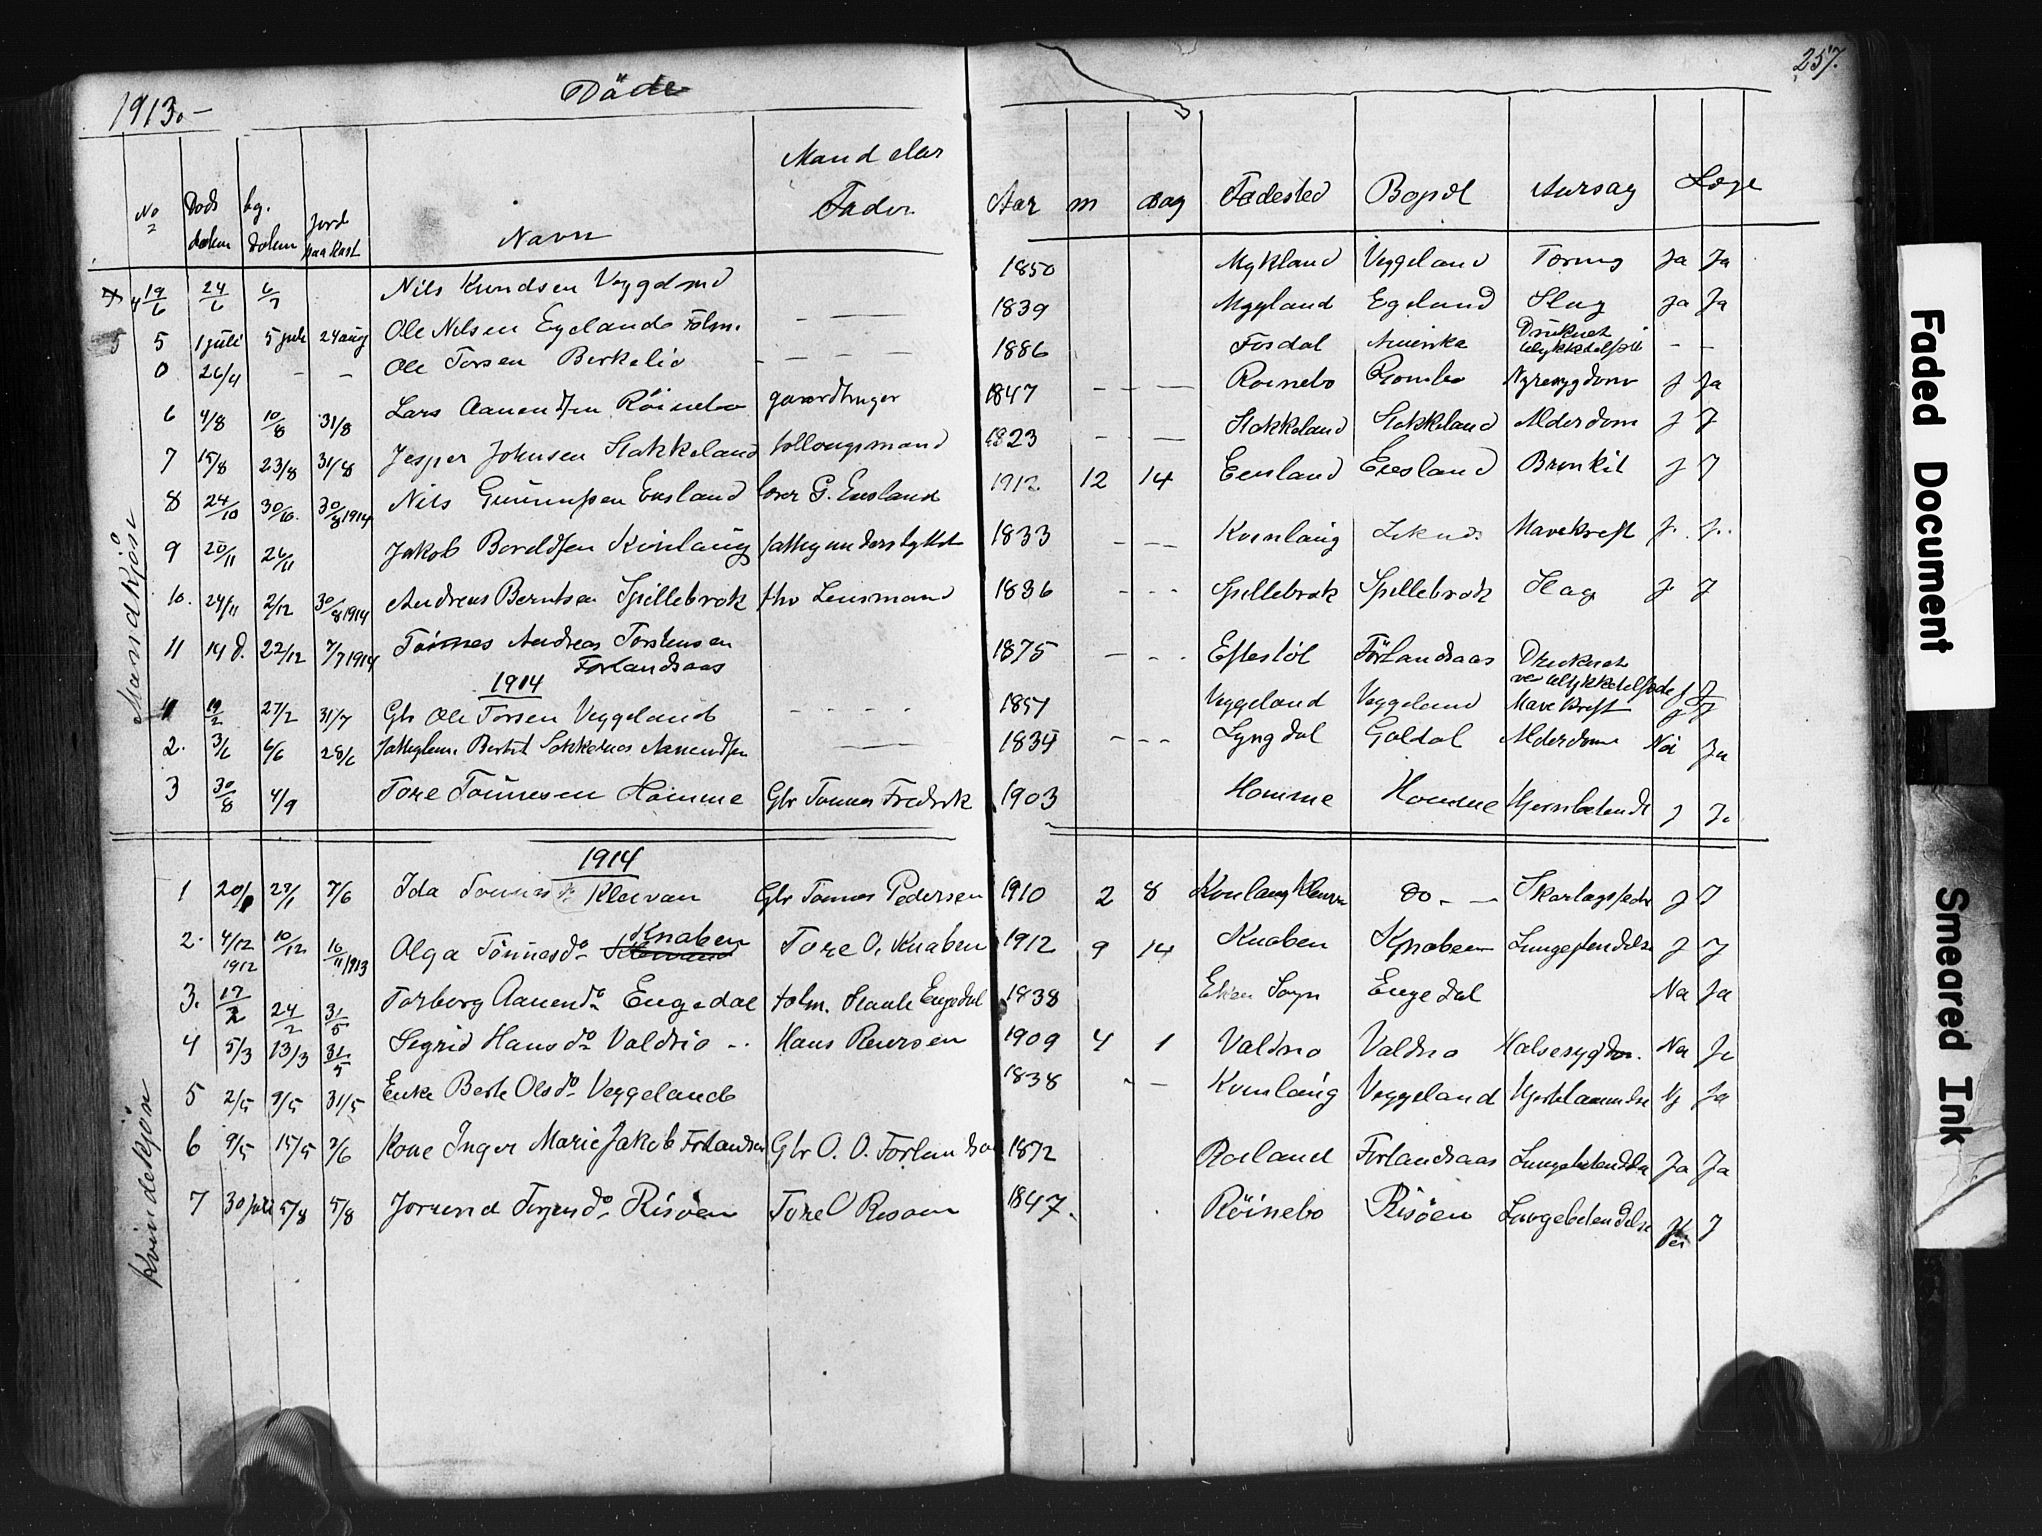 1913.— Döde 257.
No Döds datum bg. datum Jord paa kast Navn Mand eler Fader Aar m dag Födested Bopæl Aarsag Læge
Mandkjön
4 19/6 24/6 6/7 Nils Knudsen Veggeland 1850 Mykland Veggeland Tæring Ja Ja
5 5 1 juli 5 juli 24 aug Ole Nilsen Egeland Folm. — — 1839 Mygland Egeland Slag Ja Ja
0 26/4 — — Ole Torsen Birkelid — — — 1886 Fosdal Amerika Druknet ulykkedelse — —
6 4/8 10/8 31/8 Lars Aanendsen Röinebo gaardbruger 1847 — — — Roinebo Nyresygdom J Ja
7 15/8 23/8 31/8 Jesper Johnsen Stakkeland follougsmand 1823 — — — Stakkeland Stakkeland Alderdom J J
8 24/10 30/10. 30/8 1914 Nils Gunnursen Eresland G. Eresland 1912 12 14 Eresland Eresland Bronkit J J
9 20/11 26/11 Jakob Kvinlaug fattigunderstyttet 1833 — — — Kvinlaug Mavekreft J. J.
10. 24/11 2/12 30/8 1914 Andreas Berntsen Spillebrok fhv Lensmand 1836 - - - Spillebrok Spillebrok Slag J J
11 14 d. 22/12 7/7 1914 Tönnes Andreas Torstensen Forlandsaas 1875 — - - Eftestöl Förlandsaas Druknet ved ulykkedelse J J
1914
1 19/2 27/2 31/7 Gbr Ole Torsen Veggeland - - - - 1851 Veggeland Veggeland Mave Kreft J J
2. 3/6 6/6 28/6 fattiglem. Aanendsen — — 1834 - - - Lyngdal Galdal Alderdom Nei Ja
3 30/8 4/9 Tore Tönnesen Homme Gbr Tonnes Fredrik 1903 Homme Homme Hjernebetendelse J Ja
1914
Kvindekjön
1 20/1 29/1 7/6 Ida Tonnesd. Kleivan Gbr Tonnes Pedersen 1910 2 8 Kvinlaug Kleivan do - — Skarlagsfeber J J
2. 4/12 1912 10/12 16/11 1913 Olga Tönnesd. Knaben Tore O. Knaben 1912 9 14 Knaben Knaben Lungebetendelse J J
3. 17/2 24/2 31/5 Torborg Aanend. Engedal folm. Engedal 1838 Eken Sogn Engedal Na Ja
4 5/3 13/3 31/5 Sigrid Hansd. Valdrio - . Hans Reiersen 1909 4 1 Valdrio Valdrio Halsesygdom. Na Ja
5 2/5 9/5 31/5 Enke Berte Olsd. Veggeland 1838 - — Kvinlaug Veggeland Hjertelammelse N Ja
6 9/5 15/5 7/6 Kone Inger Marie Jakob Forlandsaas Gbr O. O. Forlandsaas 1872 Roiland Forlandsaas Lungebetendelse Ja Ja
7 30 juli 5/8 5/8 Jorund Tores d. Risöen Tore O Risoen 1847. . Röinebo Risöen Lungebetendelse Nei J
Faded Document
Smeared Ink